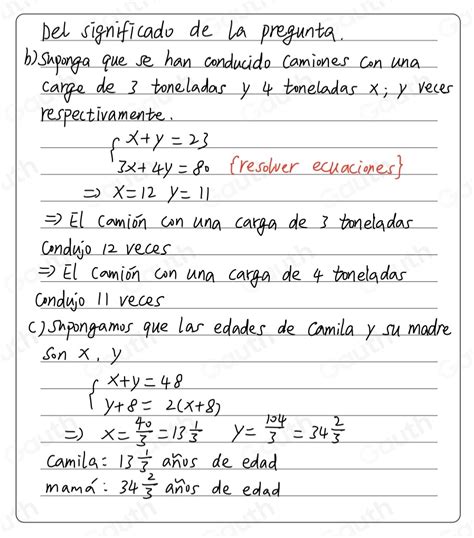 Del significado de la pregunta.
b) Suponga que se han conducido camiones con una
carge de 3 toneladas y 4 toneladas x; y veces
respectivamente.
{ x+y = 23
3x+4y = 80 {resolver ecuaciones}
⇒ x=12 y=11
⇒ El camión con una carga de 3 toneladas
condujo 12 veces
⇒ El camión con una carga de 4 toneladas
condujo 11 veces
c) Supongamos que las edades de Camila y su madre
son x, y
{ x+y = 48
y+8 = 2(x+8)
⇒ x = 40/3 = 13 1/3 y = 104/3 = 34 2/3
Camila: 13 1/3 años de edad
mamá: 34 2/3 años de edad